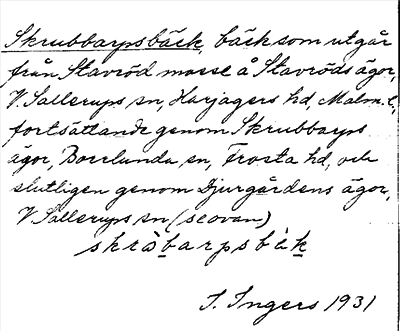 Skrubbarpsbäck, bäck som utgår
från Stavröd mosse å Stavröds ägor,
V. Sallerups sn, Harjagers hd, Malm. l.,
fortsättande genom Skrubbarps
ägor, Borrlunda sn, Frosta hd, och
slutligen genom Djurgårdens ägor,
V. Sallerups sn (se ovan)
skròbarpsbæ̀k
I. Ingers 1931